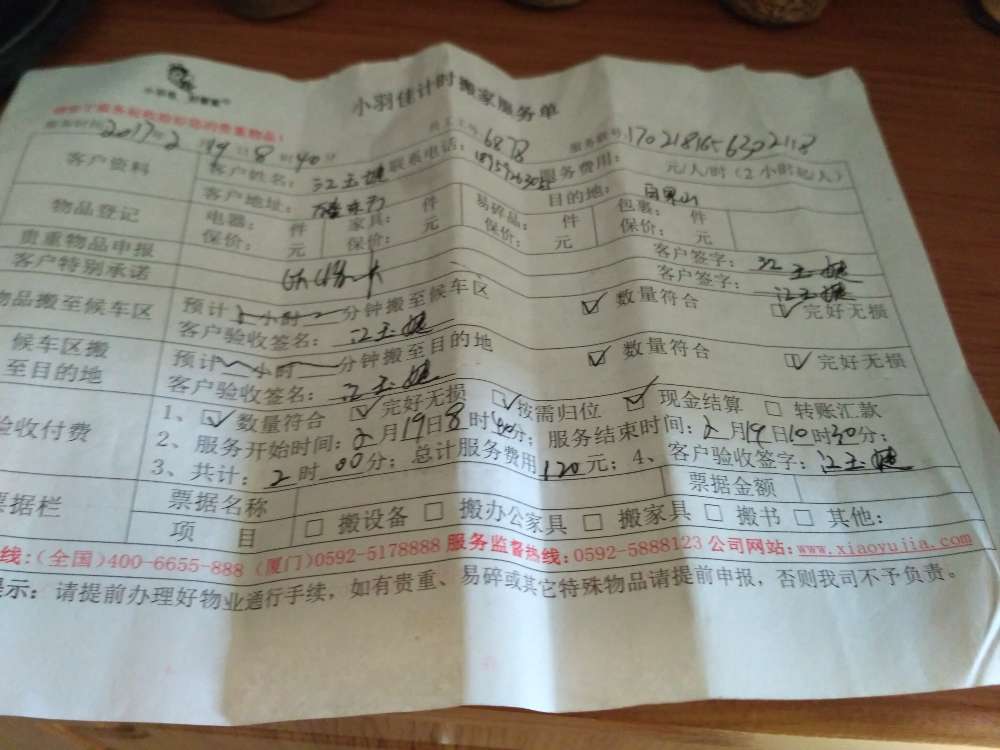 小羽佳计时搬家服务单
2017年2月19日8时40分 员工工号:6878 服务单号:
客户资料 客户姓名:江玉婕 联系电话: 服务费用: 元/人/时(2小时起/人)
客户地址: 目的地:
物品登记 电器: 件 家具: 件 易碎品: 件 包裹: 件
保价: 元 保价: 元 保价: 元 保价: 元
贵重物品申报 客户签字:江玉婕
客户特别承诺 客户签字:江玉婕
物品搬至候车区 预计 小时 分钟搬至候车区 ☑数量符合 ☑完好无损
客户验收签名:江玉婕
候车区搬至目的地 预计 小时 分钟搬至目的地 ☑数量符合 ☑完好无损
客户验收签名:江玉婕
验收付费 1、☑数量符合 ☑完好无损 ☑按需归位 ☑现金结算 □转账汇款
2、服务开始时间:2月19日8时40分;服务结束时间:2月19日10时30分;
3、共计:2时00分;总计服务费用120元;4、客户验收签字:江玉婕
票据栏 票据名称 票据金额
项目 □搬设备 □搬办公家具 □搬家具 □搬书 □其他:
线:(全国)400-6655-888 (厦门)0592-5178888 服务监督热线:0592-5888123 公司网站:www.xiaoyujia.com
提示:请提前办理好物业通行手续,如有贵重、易碎或其它特殊物品请提前申报,否则我司不予负责。